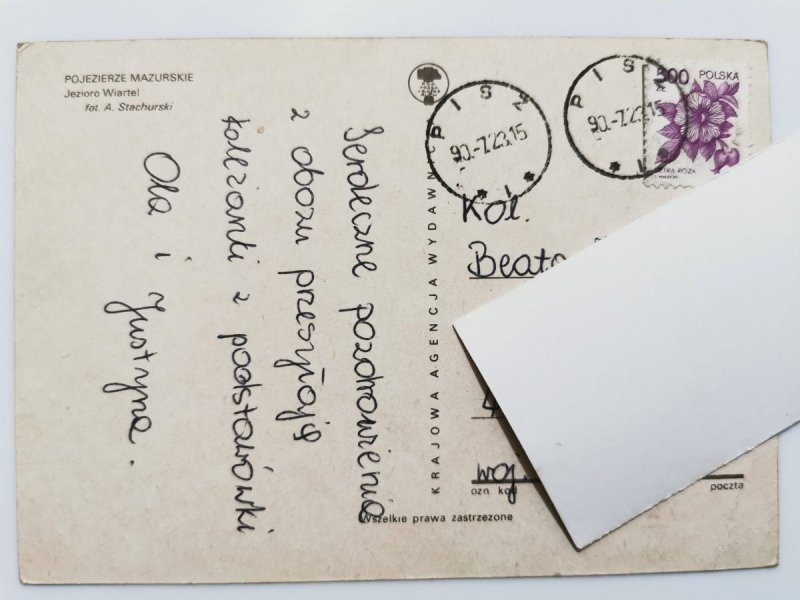 POJEZIERZE MAZURSKIE
Jezioro Wiartel
fot. A. Stachurski
Serdeczne pozdrowienia
z obozu przesyłają
koleżanki z podstawówki
Ola i Justyna.
KRAJOWA AGENCJA WYDAWNIC
Wszelkie prawa zastrzeżone
PISZ
90.-7.23.15
1
PISZ
90.-7.23.15
1
500 POLSKA
RÓŻA
Kol.
Beata
woj.
ozn. kod
poczta